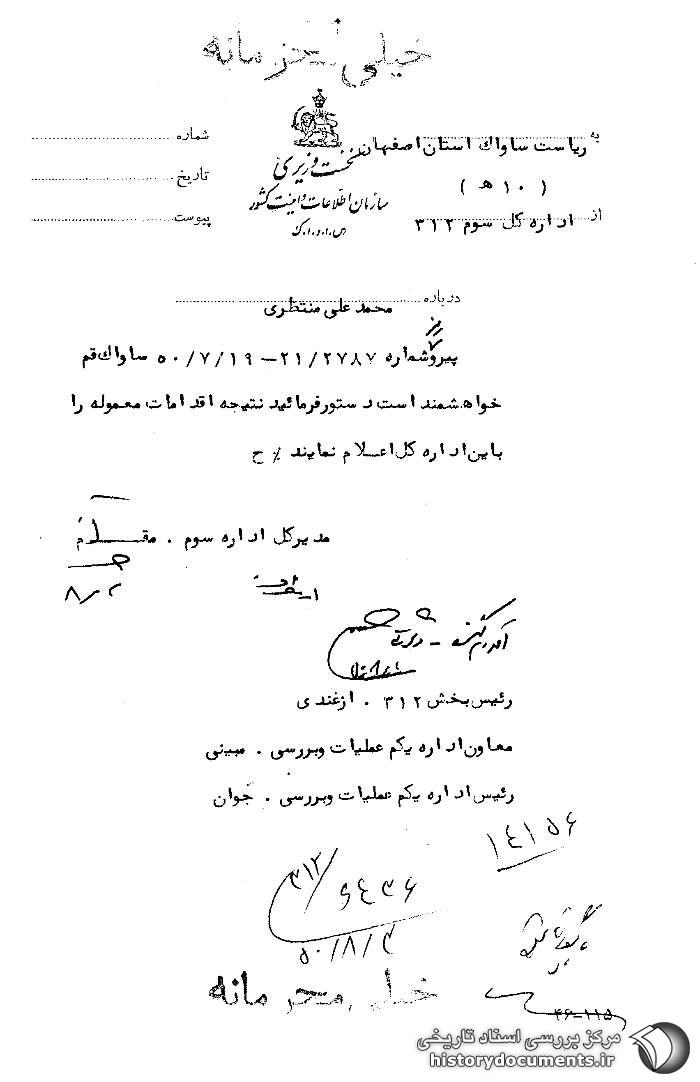 خیلی محرمانه
به ریاست ساواک استان اصفهان
(۱۰ هـ)
از اداره کل سوم ۳۱۲
نخست وزیری
سازمان اطلاعات و امنیت کشور
س.ا.و.ا.ک
شماره
تاریخ
پیوست
درباره محمد علی منتظری
پیرو شماره ۲۱/۲۷۸۷ - ۵۰/۷/۱۹ ساواک قم
خواهشمند است دستور فرمائید نتیجه اقدامات معموله را
باین اداره کل اعلام نمایند ٪ ح
مدیر کل اداره سوم . مقدم
رئیس بخش ۳۱۲ . ازغندی
معاون اداره یکم عملیات وبررسی . مبینی
رئیس اداره یکم عملیات وبررسی . جوان
۱۴۱۵۶
۳۱۲/
۵۰/۸/۳
خیلی محرمانه
۴۶-۱۱۵
مرکز بررسی اسناد تاریخی
historydocuments.ir